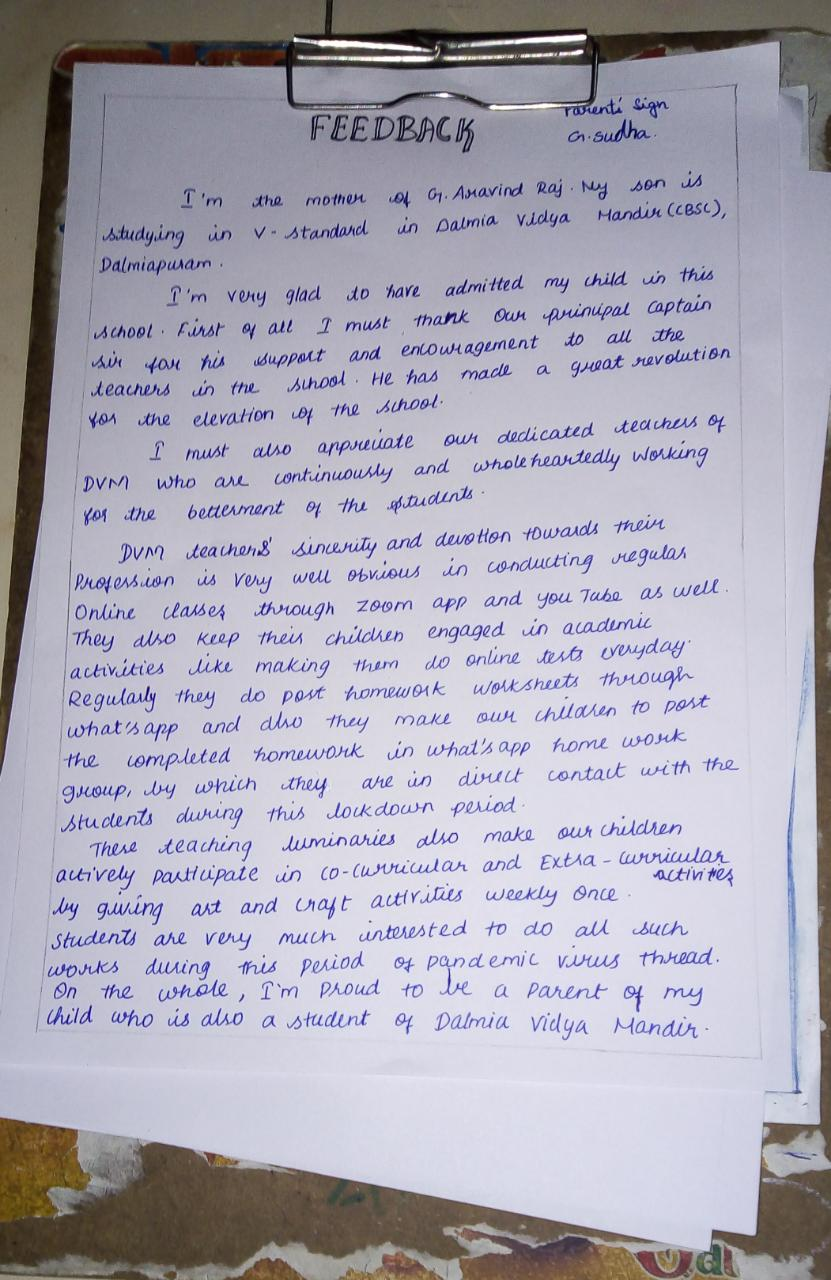 Parent's Sign
G. Sudha.
FEEDBACK
I'm the mother of G. Aravind Raj. My son is
studying in V-standard in Dalmia Vidya Mandir (CBSC),
Dalmiapuram.
I'm very glad to have admitted my child in this
school. First of all I must thank our principal Captain
sir for his support and encouragement to all the
teachers in the school. He has made a great revolution
for the elevation of the school.
I must also appreciate our dedicated teachers of
DVM who are continuously and wholeheartedly working
for the betterment of the students.
DVM teachers' sincerity and devotion towards their
Profession is very well obvious in conducting regular
Online classes through Zoom app and you Tube as well.
They also keep their children engaged in academic
activities like making them do online tests everyday.
Regularly they do post homework worksheets through
what's app and also they make our children to post
the completed homework in what's app home work
group, by which they are in direct contact with the
students during this lockdown period.
These teaching luminaries also make our children
actively participate in co-curricular and Extra-curricular
activities
by giving art and craft activities weekly once.
Students are very much interested to do all such
works during this period of pandemic virus thread.
On the whole, I'm proud to be a parent of my
child who is also a student of Dalmia Vidya Mandir.